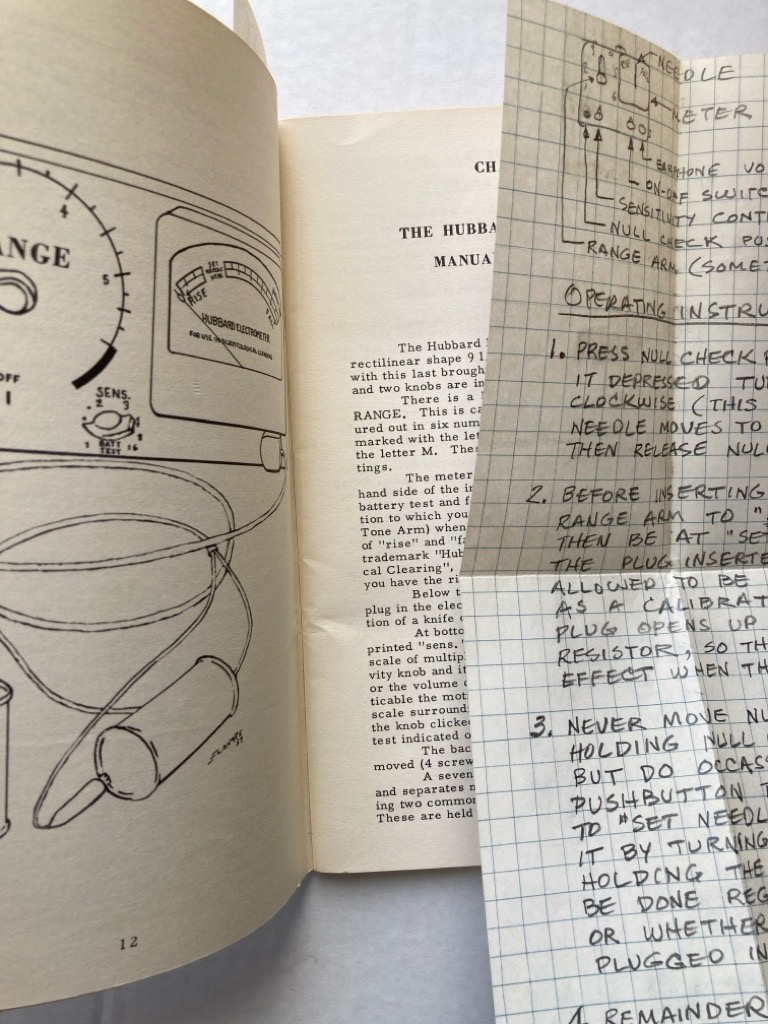 4
RANGE
5
OFF
SENS.
2 3
1 16
BATT
TEST
RISE
SET
NEEDLE
HERE
HUBBARD ELECTROMETER
FOR USE IN SCIENTOLOGICAL CLEARING
12
CH
THE HUBBA
MANUA
The Hubbard
rectilinear shape 9 1
with this last brough
and two knobs are in
There is a
RANGE. This is ca
ured out in six num
marked with the let
the letter M. Thes
tings.
The meter
hand side of the in
battery test and f
tion to which you
Tone Arm) when
of "rise" and "fa
trademark "Hub
cal Clearing",
you have the ri
Below t
plug in the elec
tion of a knife
At botto
printed "sens."
scale of multip
vity knob and it
or the volume
ticable the mot
scale surround
the knob clicke
test indicated o
The bac
moved (4 screw
A seven
and separates n
ing two common
These are held
NEEDLE
METER
EARPHONE VO
ON-OFF SWITC
SENSITIVITY CONT
NULL CHECK PO
RANGE ARM (SOMET
OPERATING INSTRU
1. PRESS NULL CHECK
IT DEPRESSED TU
CLOCKWISE (THIS
NEEDLE MOVES TO
THEN RELEASE NUL
2. BEFORE INSERTING
RANGE ARM TO "
THEN BE AT "SET
THE PLUG INSERTE
ALLOWED TO BE
AS A CALIBRAT
PLUG OPENS UP
RESISTOR, SO TH
EFFECT WHEN TH
3. NEVER MOVE NU
HOLDING NULL
BUT DO OCCAS
PUSHBUTTON T
TO "SET NEEDL
IT BY TURNING
HOLDING THE
BE DONE REG
OR WHETHER
PLUGGED IN
4. REMAINDER